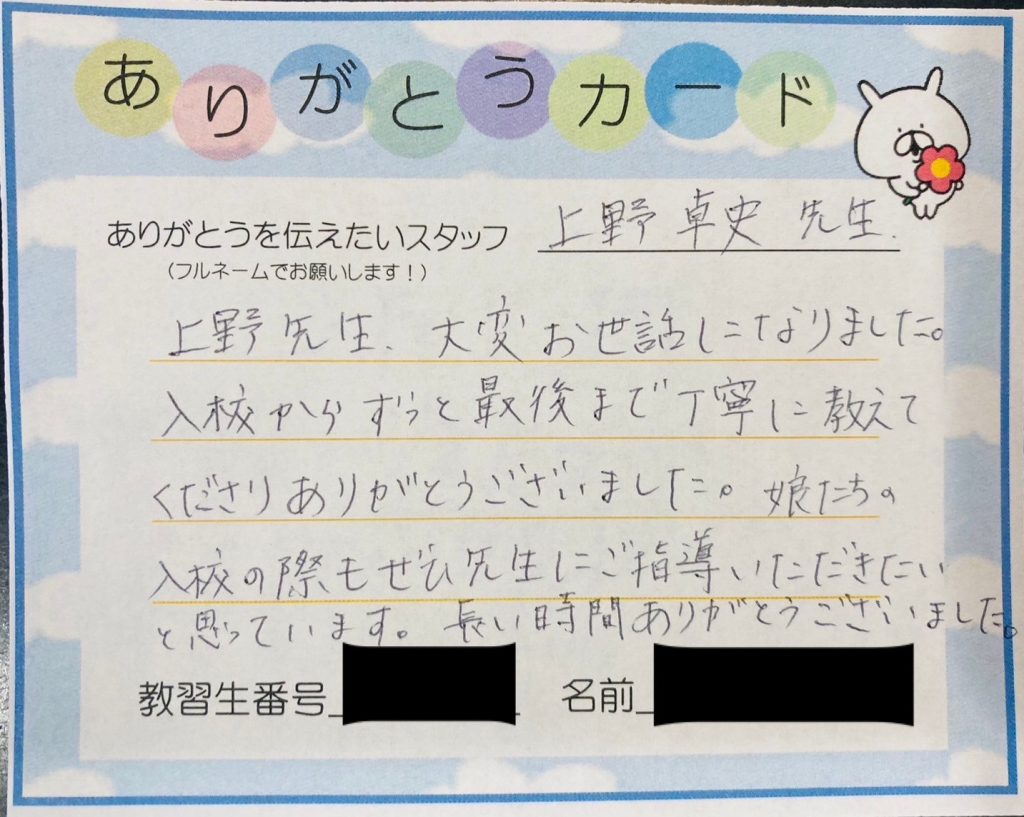 ありがとうカード
ありがとうを伝えたいスタッフ 上野 卓史 先生.
(フルネームでお願いします!)
上野先生、大変お世話になりました。
入校からずっと最後まで丁寧に教えて
くださりありがとうございました。娘たちの
入校の際もぜひ先生にご指導いただきたい
と思っています。長い時間ありがとうございました。
教習生番号 名前